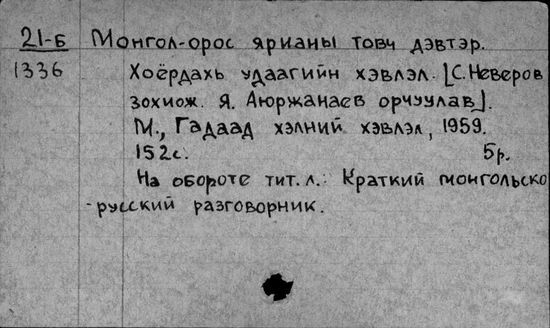 21-Б Монгол-орос ярианы товч дэвтэр.
1336 Хоёрдахь удаагийн хэвлэл. [С. Неверов
зохиож. Я. Аюржанаев орчуулав].
М., Гадаад хэлний хэвлэл, 1959.
152с. 5р.
На обороте тит. л.: Краткий монгольско
-русский разговорник.